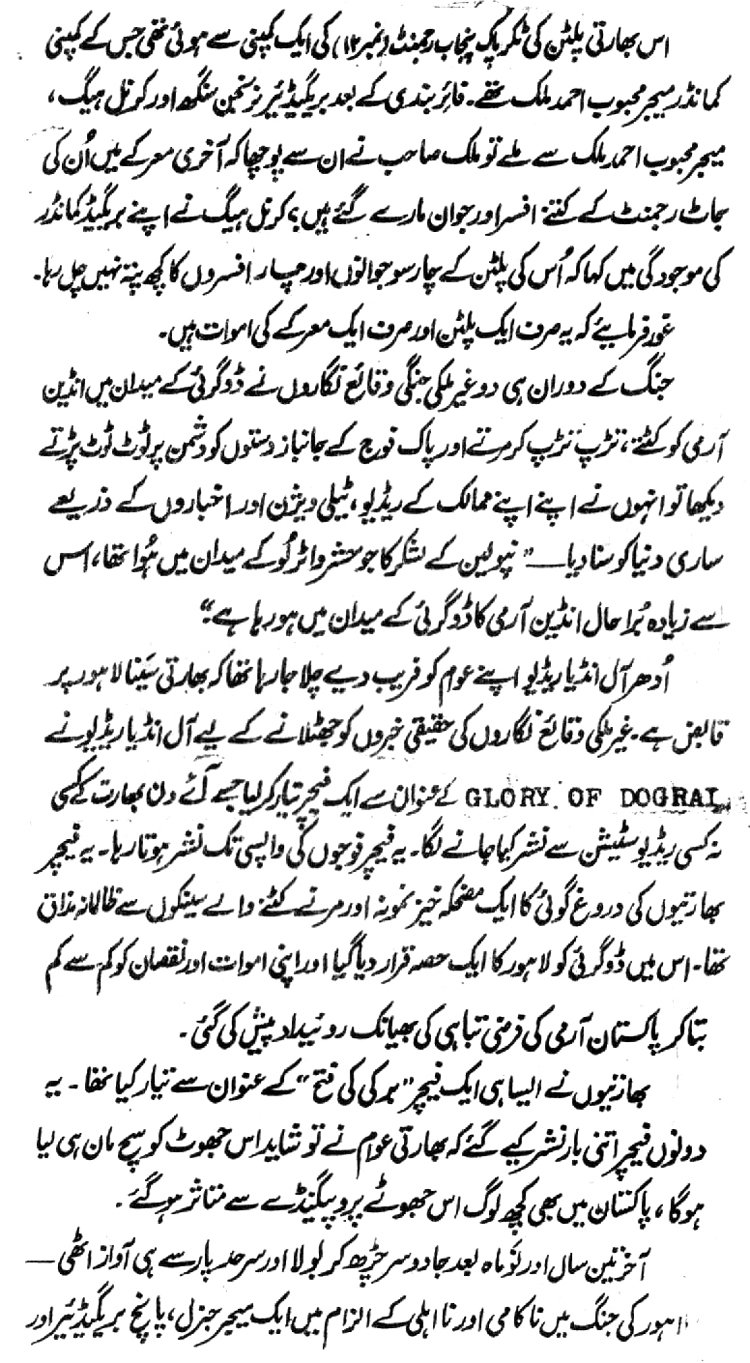 اس بھارتی پلٹن کی ٹکر پاک پنجاب رجمنٹ (نمبر ۱۲) کی ایک کمپنی سے ہوئی تھی جس کے کمپنی
کمانڈر میجر محبوب احمد ملک تھے۔ فائر بندی کے بعد بریگیڈیئر نرنجن سنگھ اور کرنل ہیگ،
میجر محبوب احمد ملک سے ملے تو ملک صاحب نے ان سے پوچھا کہ آخری معرکے میں اُن کی
جاٹ رجمنٹ کے کتنے افسر اور جوان مارے گئے ہیں؟ کرنل ہیگ نے اپنے بریگیڈ کمانڈر
کی موجودگی میں کہا کہ اُس کی پلٹن کے چار سو جوانوں اور چار افسروں کا کچھ پتہ نہیں چل رہا۔
غور فرمایئے کہ یہ صرف ایک پلٹن اور صرف ایک معرکے کی اموات ہیں۔
جنگ کے دوران ہی دو غیر ملکی جنگی وقائع نگاروں نے ڈوگرئی کے میدان میں انڈین
آرمی کو کٹتے، تڑپ تڑپ کر مرتے اور پاک فوج کے جانباز دستوں کو دشمن پر ٹوٹ ٹوٹ پڑتے
دیکھا تو انہوں نے اپنے اپنے ممالک کے ریڈیو، ٹیلی ویژن اور اخباروں کے ذریعے
ساری دنیا کو سنا دیا — "نپولین کے لشکر کا جو حشر واٹرلُو کے میدان میں ہُوا تھا، اس
سے زیادہ بُرا حال انڈین آرمی کا ڈوگرئی کے میدان میں ہو رہا ہے"۔
اُدھر آل انڈیا ریڈیو اپنے عوام کو فریب دیے چلا جا رہا تھا کہ بھارتی سَینا لاہور پر
قابض ہے۔ غیر ملکی وقائع نگاروں کی حقیقی خبروں کو جھٹلانے کے لیے آل انڈیا ریڈیو نے
GLORY OF DOGRAI کے عنوان سے ایک فیچر تیار کر لیا جسے آئے دن بھارت کے کسی
نہ کسی ریڈیو سٹیشن سے نشر کیا جانے لگا۔ یہ فیچر فوجوں کی واپسی تک نشر ہوتا رہا۔ یہ فیچر
بھارتیوں کی دروغ گوئی کا ایک مضحکہ خیز نمونہ اور مرتے کٹنے والے سینکوں سے ظالمانہ مذاق
تھا۔ اس میں ڈوگرئی کو لاہور کا ایک حصہ قرار دیا گیا اور اپنی اموات اور نقصان کو کم سے کم
بتا کر پاکستان آرمی کی فرضی تباہی کی بھیانک روئیداد پیش کی گئی۔
بھارتیوں نے ایسا ہی ایک فیچر "برکی کی فتح" کے عنوان سے تیار کیا تھا۔ یہ
دونوں فیچر اتنی بار نشر کیے گئے کہ بھارتی عوام نے تو شاید اس جھوٹ کو سچ مان ہی لیا
ہوگا، پاکستان میں بھی کچھ لوگ اس جھوٹے پروپیگنڈے سے متاثر ہو گئے۔
آخر تین سال اور نَو ماہ بعد جادو سر چڑھ کر بولا اور سرحد پار سے ہی آواز اٹھی —
لاہور کی جنگ میں ناکامی اور نااہلی کے الزام میں ایک میجر جنرل، پانچ بریگیڈیئر اور